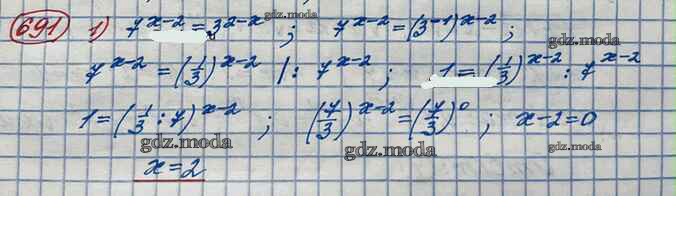 691 1) 7^(x-2) = 3^(2-x) ; 7^(x-2) = (3^(-1))^(x-2) ;
gdz.moda
gdz.moda
7^(x-2) = (1/3)^(x-2) | : 7^(x-2) ; 1 = (1/3)^(x-2) : 7^(x-2)
gdz.moda
1 = (1/3 : 7)^(x-2) ; (7/3)^(x-2) = (7/3)^0 ; x-2=0
gdz.moda gdz.moda gdz.moda
x=2
gdz.moda